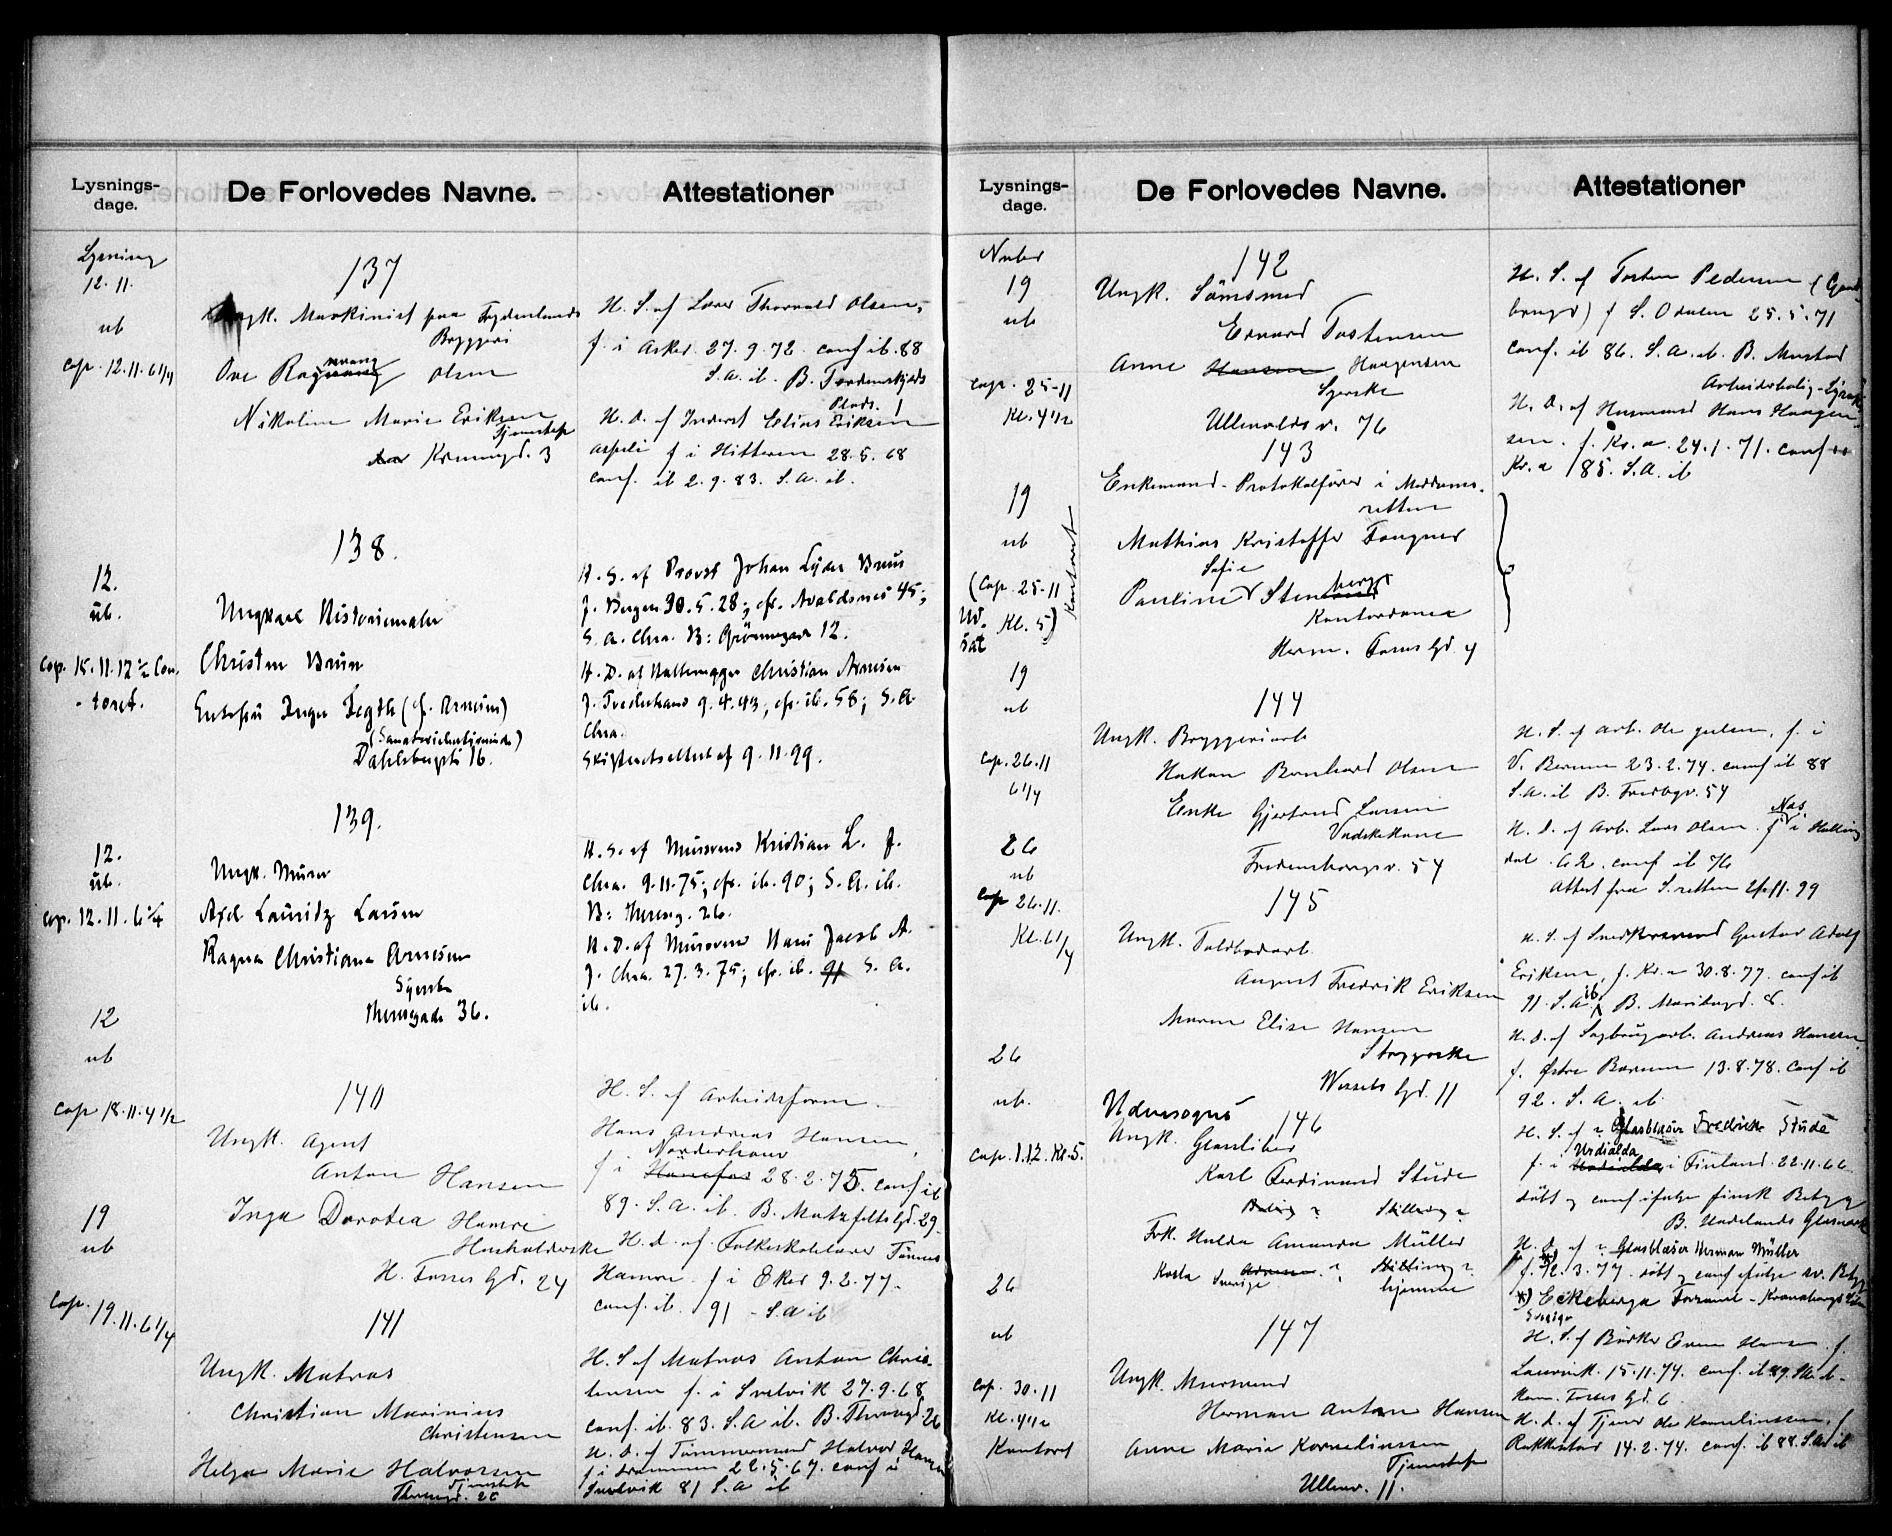 Lysnings-
dage.
De Forlovedes Navne.
Attestationer
Lysning
12.11.
ub
cop. 12.11. 6 1/4
137
Ungk. Maskinist paa Frydenlunds
Bryggeri
Ove Olsen
Nikoline Marie Eriksen
Tjenestep
3
H. S. af Thorvald Olsen,
f. i Asker 27.9.72. conf ib. 88
S. a. ib. B. Tordenskjolds
Plads. 1
H. D. af Inderst Elias Eriksen
f i Hitteren 28.5.68
conf. ib 2.9.83. S. a. ib.
12.
ub.
cop. 15.11. 12 1/2 Con-
toret.
138.
Ungkarl Historiemaler
Christen Brun
Inger Fegth (f. Arnesen)
Dahlsbergsti 16.
H. S. af Provst Johan Lyder Brun
f. Bergen 30.5.28; cfr. Avaldsnes 45;
S. a. Chra. B: 12.
H. D. af Christian Arnesen
f. Frederikand 9.4.43, cfr. ib. 58; S. a
Chra.
Skifteretsattest af 9.11.99.
12.
ub.
cop. 12.11. 6 1/4
139.
Ungk. Murer
Axel Lauritz Larsen
Ragna Christiane Arnesen
Syerske
Theresegade 36.
H. S. af Mursvend Kristian L. f.
Chra. 9.11.75; cfr. ib. 90; S. a. ib.
B: Thereseg. 26.
H. D. af Mursvend Hans Jacob A.
f. Chra. 27.3.75; cfr. ib. 91 S. a.
ib.
12
ub
cop 18.11. 4 1/2
140
Ungk. Agent
Anton Hansen
Inga Dorotea Hamre
Husholderske
H. Fosses Gd. 24
H. S. af Arbeidsform.
Hans Andreas Hansen,
Norderhov
f i Hønefos 28.2.75. conf ib
89. S. a. ib. B. Matzfeltsgd. 29.
H. d. af Folkeskolelærer Tønnes
Hamre f i Eker 9.2.77.
conf. ib. 91 - S. a ib
19
ub
cop. 19.11. 6 1/4
141
Ungk. Matros
Christian Marinius
Christensen
Helga Marie Halvorsen
Tjenestep
Theresegd. 26
H. S. af Matros Anton Chris-
tensen f. i Svelvik 27.9.68
conf ib. 83. S. a ib. B. Theresegd. 26
H. D. af Tømmermand Halvor Hansen
f i Drammen 22.5.67. conf i
Svelvik 81 S. a ib
Lysnings-
dage.
De Forlovedes Navne.
Attestationer
Nvbr
19
ub
cop. 25-11
Kl. 4 1/2
142
Ungk. Sømsmed
Edvard Tostensen
Anne Hansen Haagensen
Syerske
Ullevoldsv. 76
H. S. af Tosten Pedersen (Gaard-
bruger) f S. Odalen 25.5.71
conf. ib 86. S. a. ib. B. Mustad
Arbeiderbolig - Lysaker
H. D. af Husmand Hans Haagen-
sen. f. Kr.a 24.1.71. conf
Kr.a 85. S. a. ib
19
ub
(cop. 25-11
Kl. 5)
Kontoret
Ud-
sat
143
Enkemand - Protokolfører i Meddoms-
retten
Mathias Kristoffer Fougner
Sofie
Pauline Stenberg
Kontordame
Herm. Fosses Gd. 4
19
ub
cop. 26.11
6 1/4
144
Ungk. Bryggeriarb
Hakon Bernhard Olsen
Enke Gjertrud Larsen
Vadskekone
Fredensborgv. 54
H. S. af arb. Ole f. i
V. Bærum 23.2.74. conf ib 88
S. a. ib B. Fredbgv. 54
Nes
H. D. af Arb. Lars Olsen. f i Halling-
dal 62. conf ib 76
Attest fra S.retten 21.11.99
26
ub
cop 26.11.
Kl. 6 1/4
145
Ungk. Toldbodarb.
August Fredrik Eriksen
Maren Elise Hansen
Strygerske
Wessels Gd. 11
H. S. af Snedkersvend Gustav Adolf
Eriksen, f. Kr.a 30.8.77. conf ib
91. S. a. ib B. Maribogd. 8.
H. D. af Sagbrugsarb. Andreas Hansen
f. Østre Bærum 13.8.78. conf ib
92. S. a. ib
26
ub.
cop. 1.12. Kl. 5.
Udensogns
146
Ungk. Glassliber
Karl Ferdinand Stude
Bolig ? Stilling ?
Frk. Hulda Amanda Müller
Kosta Sverige Adresse ? Stilling ?
hjemme
H. S. af ? Glasblæser Fredrik Stude
Urdiala
f. i i Finland 22.11.66
døbt og conf ifølge finsk Betyg
B. Hadelands Glasværk
H. D. af ? Glasblæser Herman Müller
f. *) 12.3.77. døbt og conf ifølge sv. Betyg
*) Eckeberga - Kronobergs Län
Sverige
26
ub
cop. 30.11
Kl. 4 1/2
Kontoret
147
Ungk. Mursvend
Herman Anton Hansen
Anne Marie Kornelinssen
Tjenestep
Ullevv. 11.
H. S. af Bødker Even Hansen f.
Laurvik 15.11.74. conf. ib 89.
Herm. Fosses Gd. 6
H. d. af Tjener Ole Kornelinssen, f
Rakkestad 14.2.74. conf. ib 88. S. a. ib